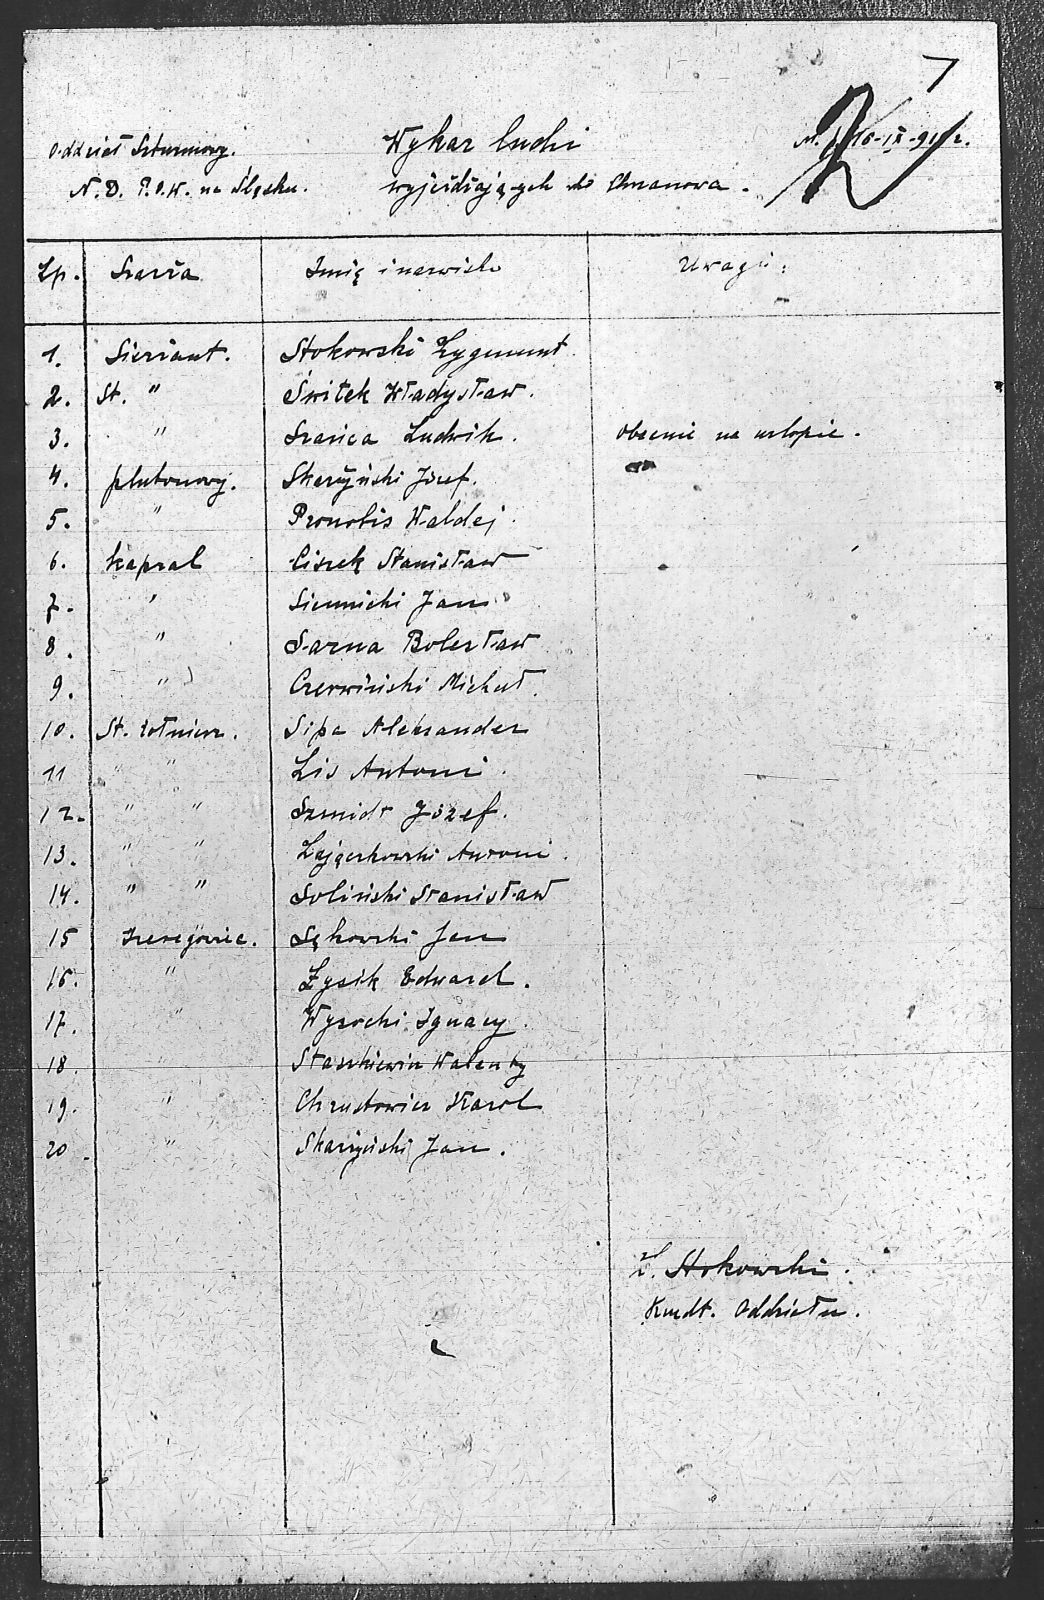 7
Oddział Szturmowy.
N. D. P.O.W. na Śląsku.
Wykaz ludzi
wyjeżdżających do Chrzanowa.
16-IX-
Lp. Szarża Imię i nazwisko Uwagi:
1. Sierżant. Stokowski Zygmunt.
2. St. " Świtek Władysław.
3. " Szarica Ludwik. Obecnie na urlopie.
4. plutonowy. Skarżyński Józef.
5. " Pronobis Waldej.
6. kapral Ciszek Stanisław
7. " Siennicki Jan
8. " Sarna Bolesław
9. " Czerwiński Michał.
10. St. żołnierz. Sipa Aleksander
11 " " Lis Antoni.
12. " " Szmidt Józef.
13. " " Zajączkowski Antoni.
14. " " Soliński Stanisław
15 Szeregowiec. Sękowski Jan
16. " Zysik Edward.
17. " Wysocki Ignacy.
18. " Staszkiewicz Walenty
19. " Chrustowicz Karol
20. " Skarżyński Jan.
Z. Stokowski.
Kmdt. Oddziału.